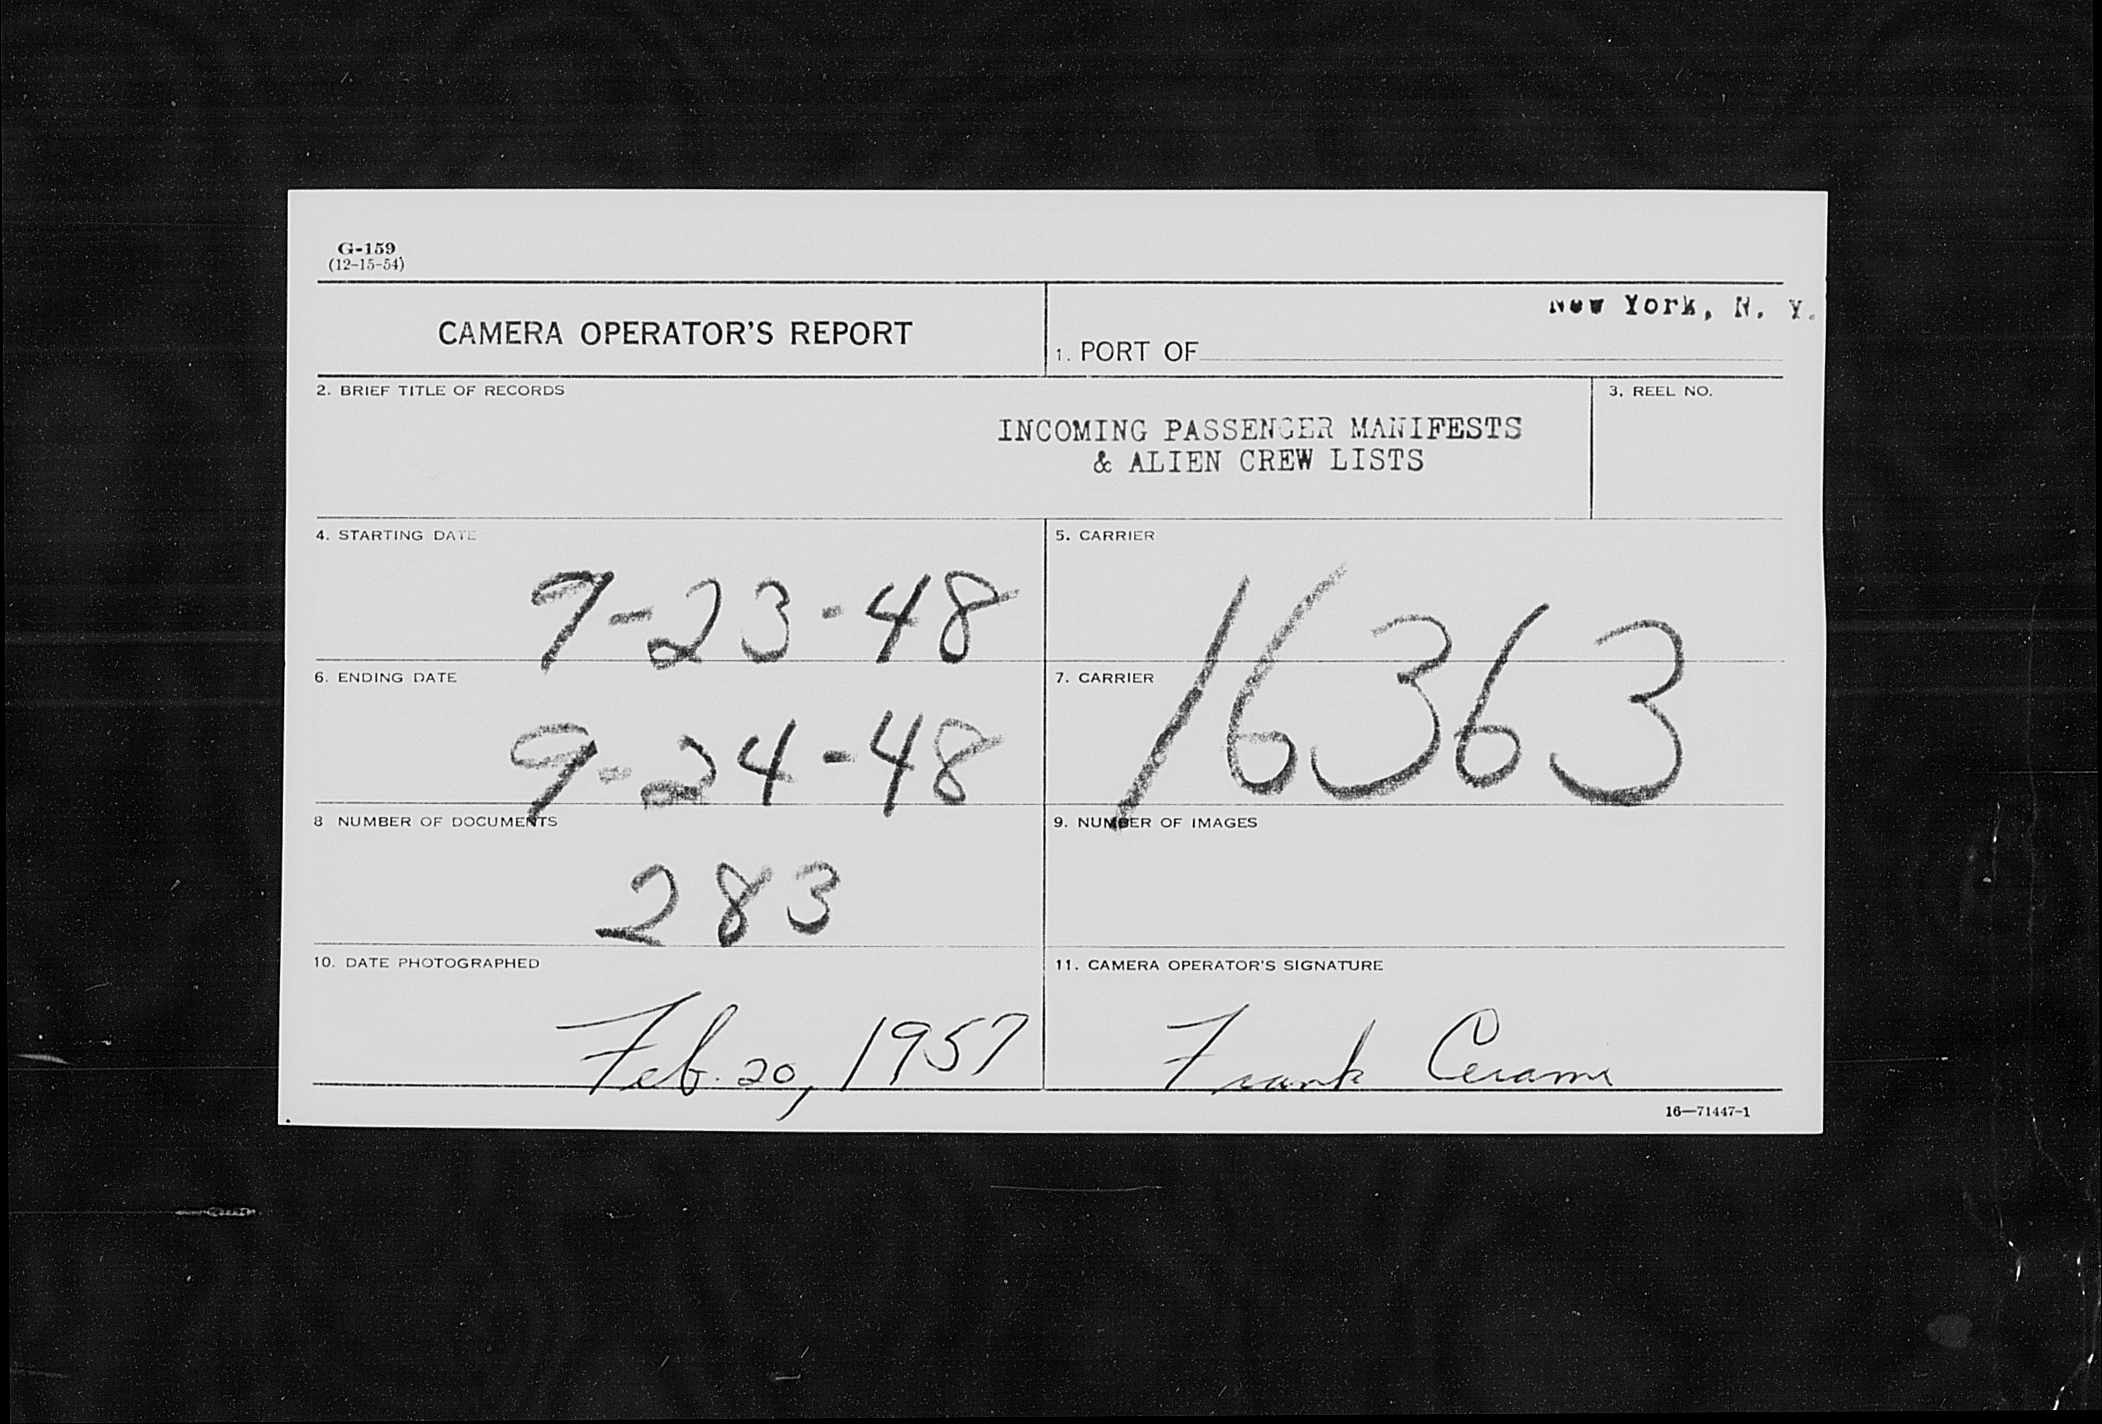 G-159
(12-15-54)
CAMERA OPERATOR'S REPORT
New York, N. Y.
1. PORT OF
2. BRIEF TITLE OF RECORDS
INCOMING PASSENGER MANIFESTS
& ALIEN CREW LISTS
3. REEL NO.
4. STARTING DATE
9-23-48
5. CARRIER
16363
6. ENDING DATE
9-24-48
7. CARRIER
8 NUMBER OF DOCUMENTS
283
9. NUMBER OF IMAGES
10. DATE PHOTOGRAPHED
Feb. 20, 1957
11. CAMERA OPERATOR'S SIGNATURE
Frank Cerami
16—71447-1